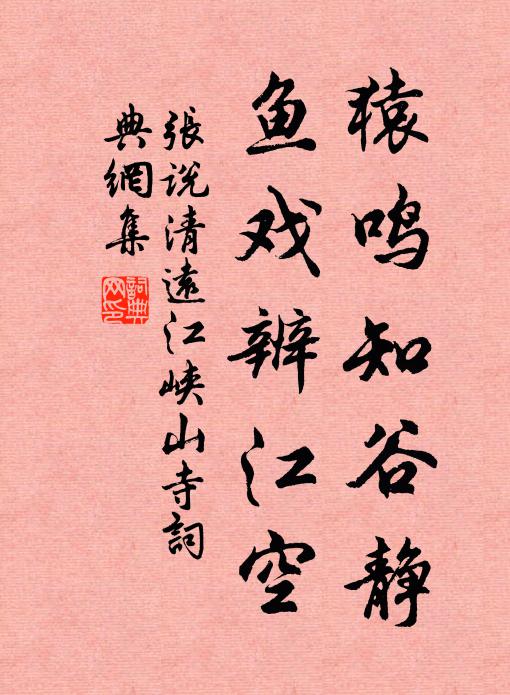 猿鸣知谷静
鱼戏辨江空
張说清遠江峡山寺詞
典網集
詞典
网印